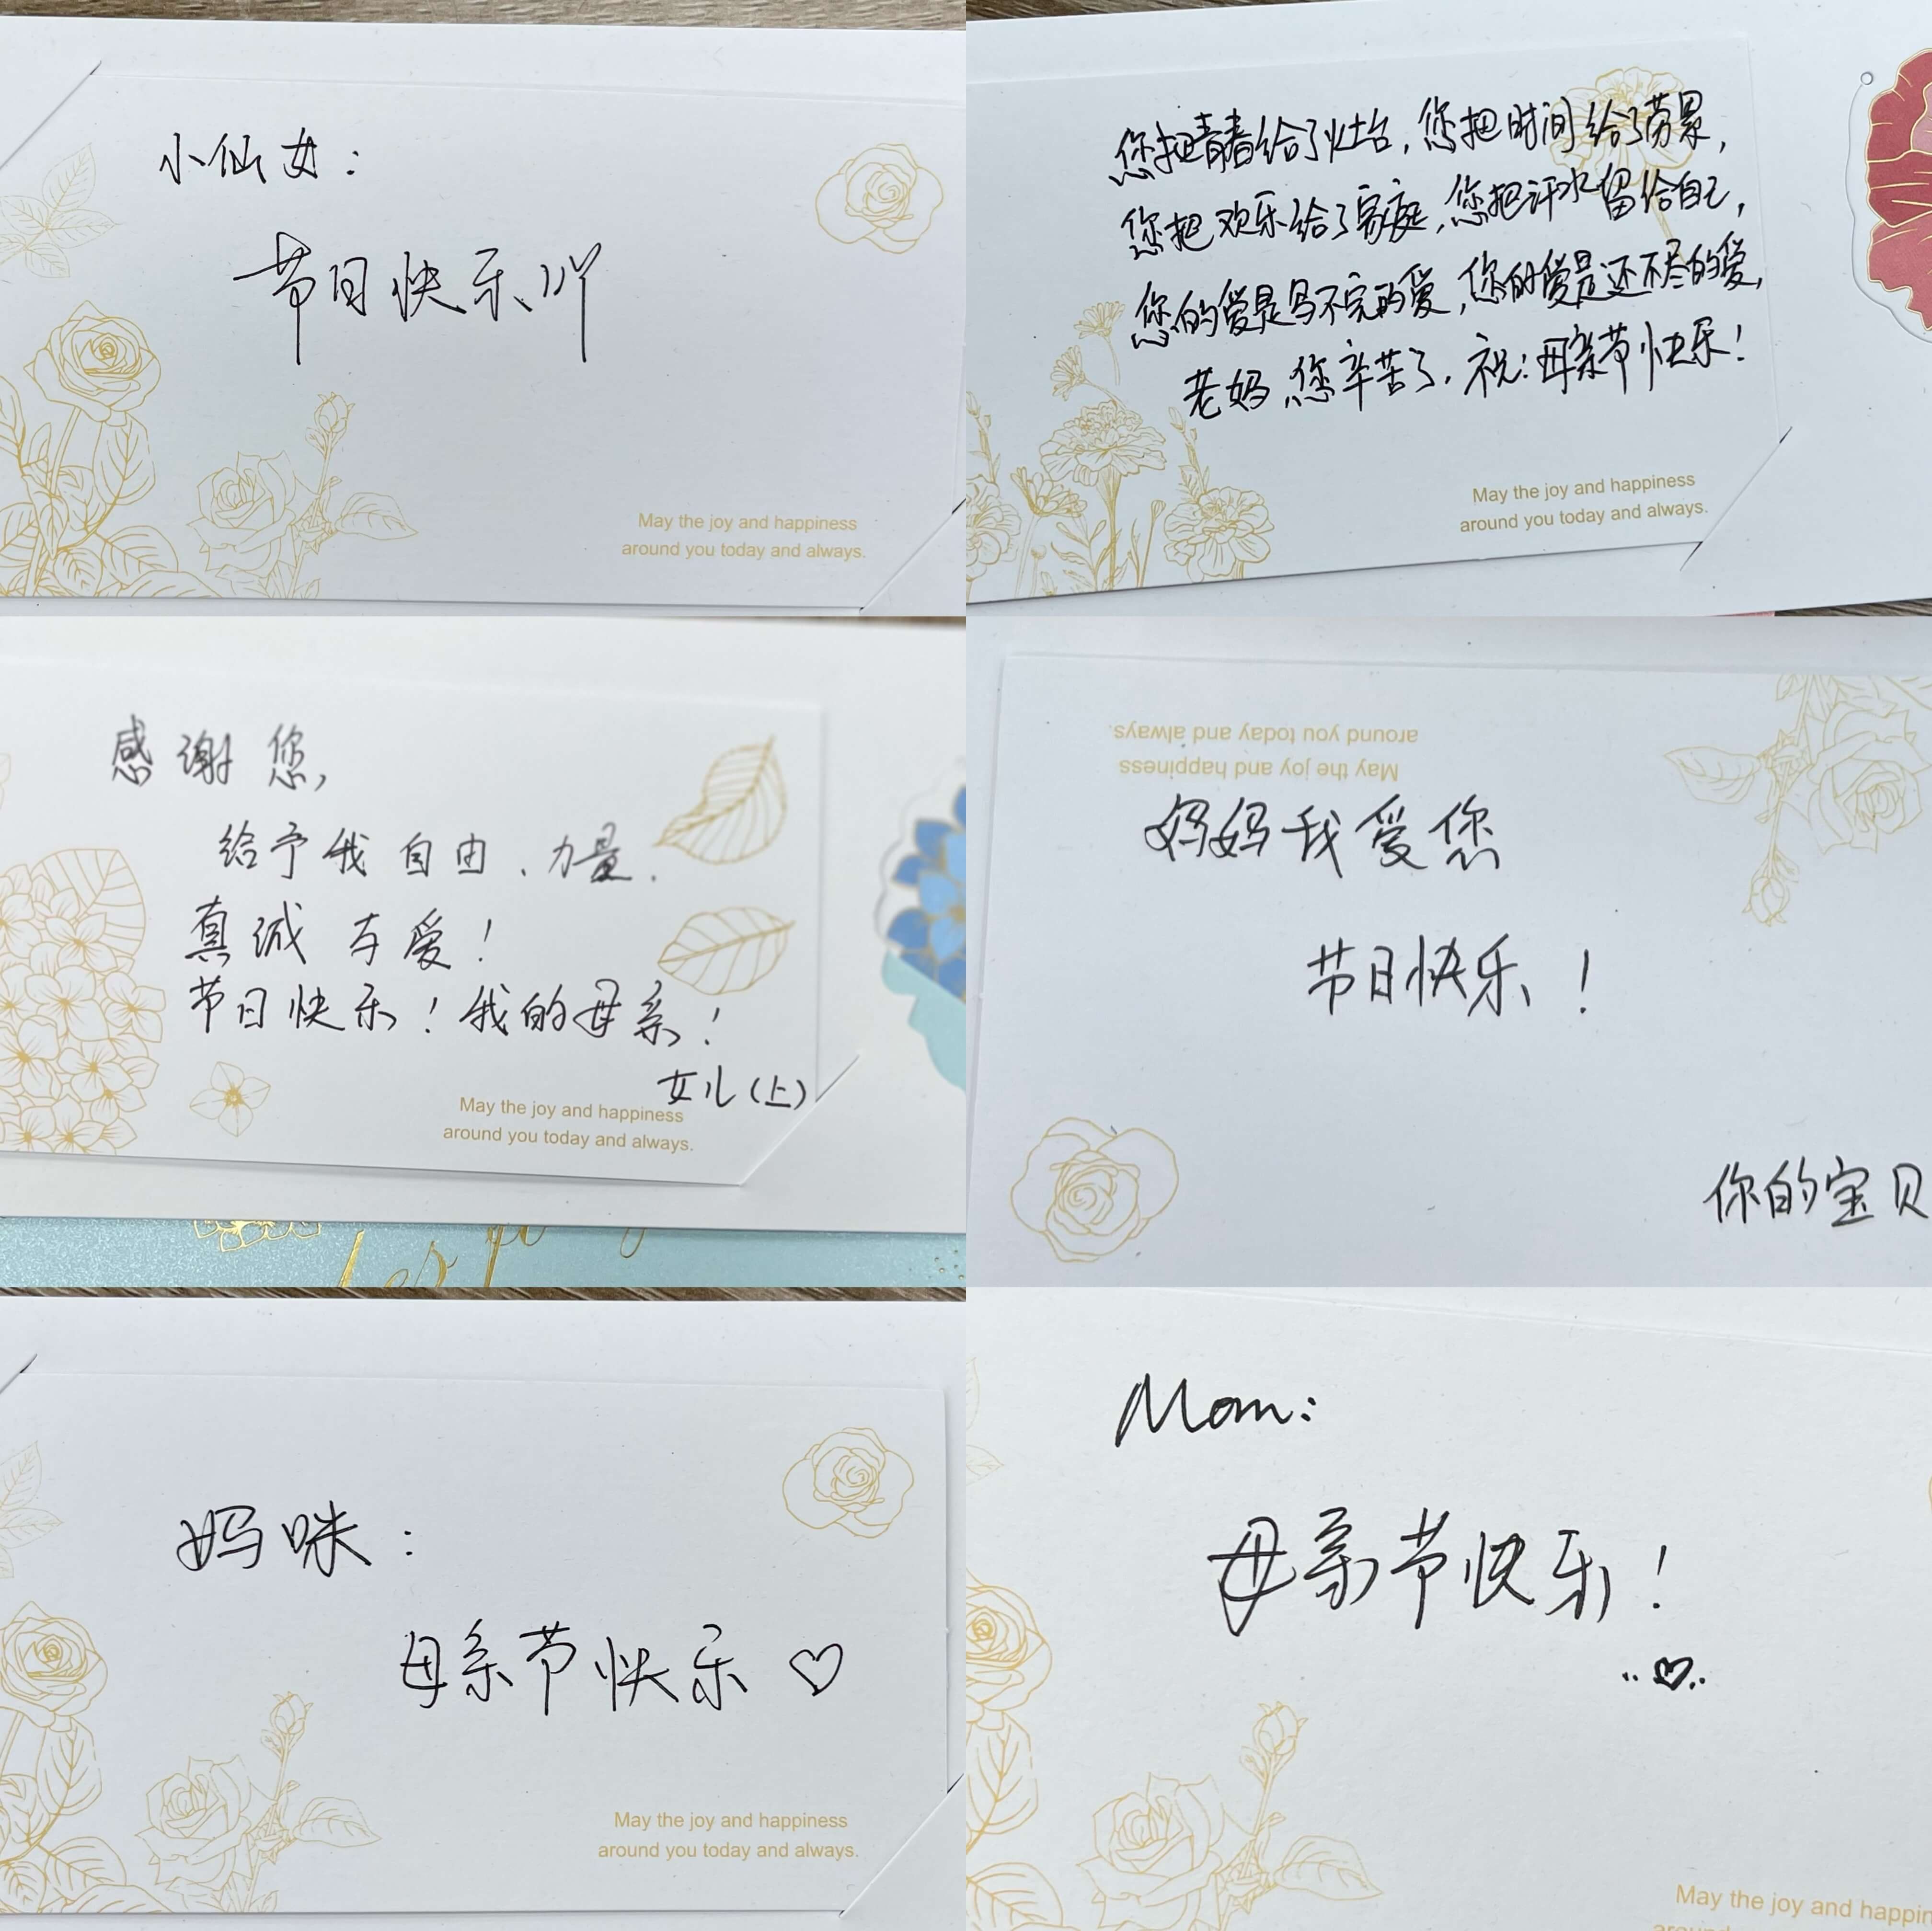 小仙女：
节日快乐
May the joy and happiness
around you today and always.
您把青春给了灶台，您把时间给了劳累，
您把欢乐给了家庭，您把汗水留给自己，
您的爱是写不完的爱，您的爱是还不尽的爱，
老妈，您辛苦了，祝：母亲节快乐！
May the joy and happiness
around you today and always.
感谢您，
给予我自由、力量、
真诚与爱！
节日快乐！我的母亲！
女儿(上)
May the joy and happiness
around you today and always.
May the joy and happiness
around you today and always.
妈妈我爱您
节日快乐！
你的宝贝
妈咪：
母亲节快乐♡
May the joy and happiness
around you today and always.
Mom:
母亲节快乐！
May the joy and happin